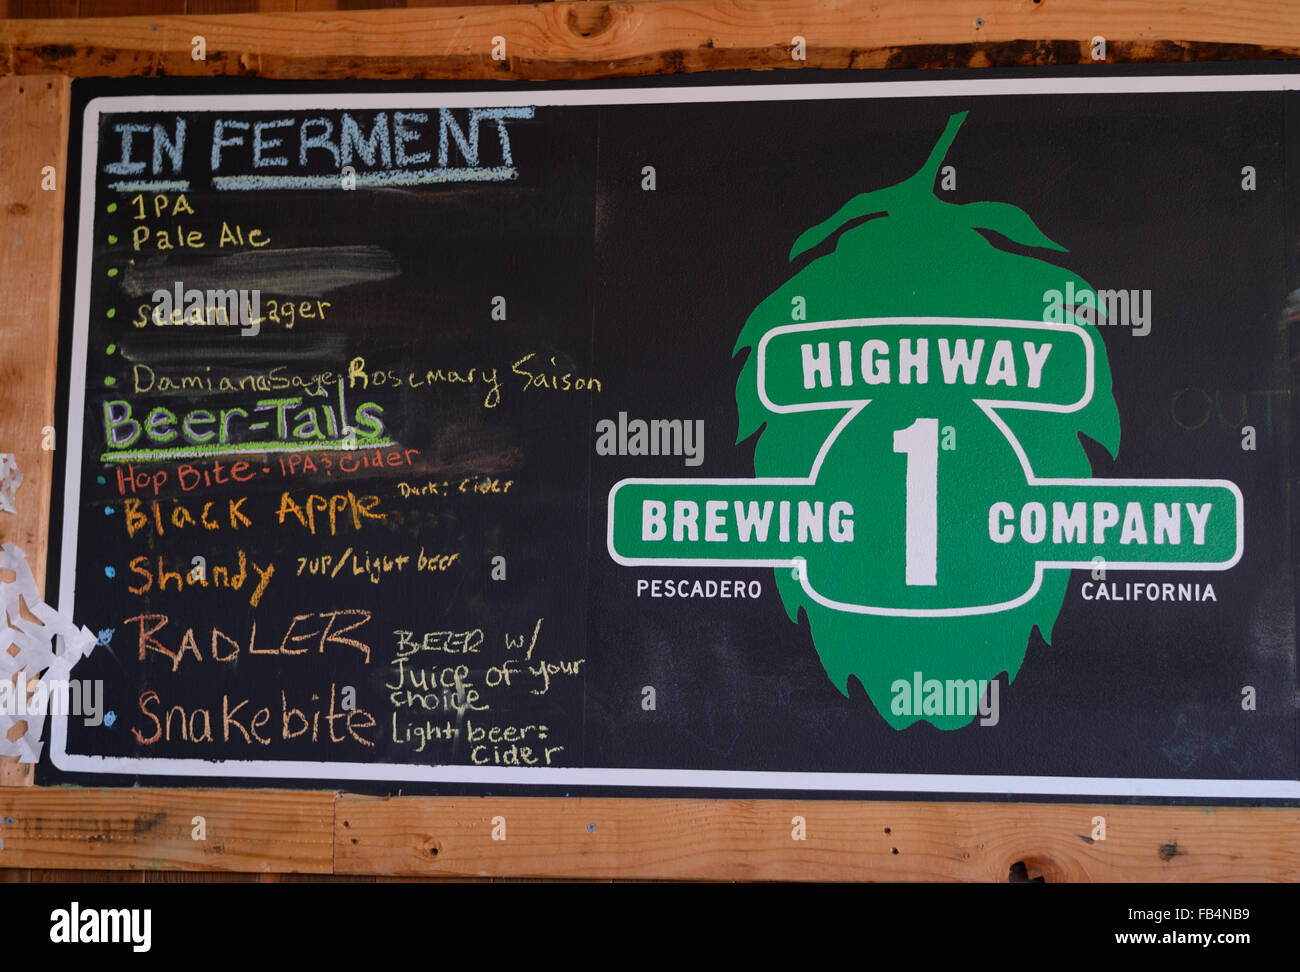 IN FERMENT
• IPA
• Pale Ale
•
• Steam Lager
•
• Damiana Sage, Rosemary Saison
Beer-Tails
• Hop Bite: IPA & Cider
• Black Apple Dark: Cider
• Shandy 7UP/Light beer
• RADLER BEER w/
Juice of your
choice
• Snakebite Light beer:
Cider
HIGHWAY
1
BREWING COMPANY
PESCADERO CALIFORNIA
OUT
alamy stock photo
alamy
Image ID: FB4NB9
www.alamy.com